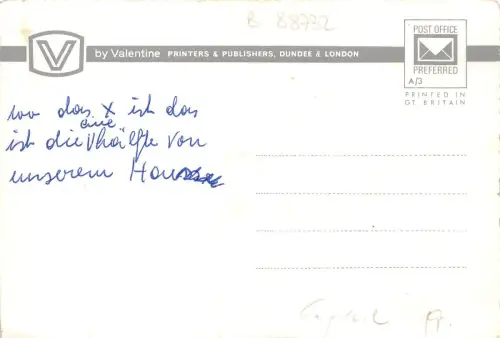 B 88732
POST OFFICE
PREFERRED
A/3
PRINTED IN
GT. BRITAIN
V by Valentine PRINTERS & PUBLISHERS, DUNDEE & LONDON
wo das x ist das
ist die eine hälfte von
unserem Haus